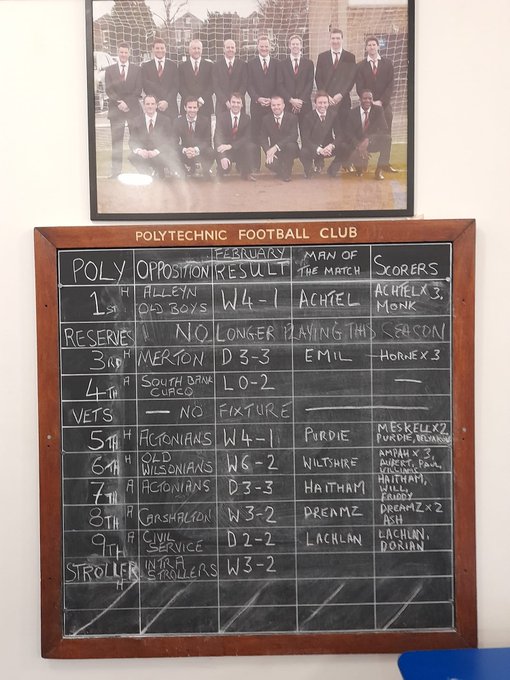 POLYTECHNIC FOOTBALL CLUB
POLY OPPOSITION FEBRUARY RESULT MAN OF THE MATCH SCORERS
1ST H ALLEYN OLD BOYS W4-1 ACHTEL ACHTEL X 3, MONK
RESERVES NO LONGER PLAYING THIS SEASON
3RD H MERTON D 3-3 EMIL HORNE X 3
4TH A SOUTH BANK CUACO L0-2 —
VETS — NO FIXTURE —
5TH H ACTONIANS W4-1 PURDIE MESKELL X2 PURDIE,
6TH H OLD WILSONIANS W6-2 WILTSHIRE AMPAH X 3, AUBERT, PAUL, WILLIAMS
7TH A ACTONIANS D3-3 HAITHAM HAITHAM, WILL, FRIDDY
8TH A CARSHALTON W3-2 DREAMZ DREAMZ X 2 ASH
9TH A CIVIL SERVICE D2-2 LACHLAN LACHLAN, DORIAN
STROLLER H INTRA STROLLERS W3-2